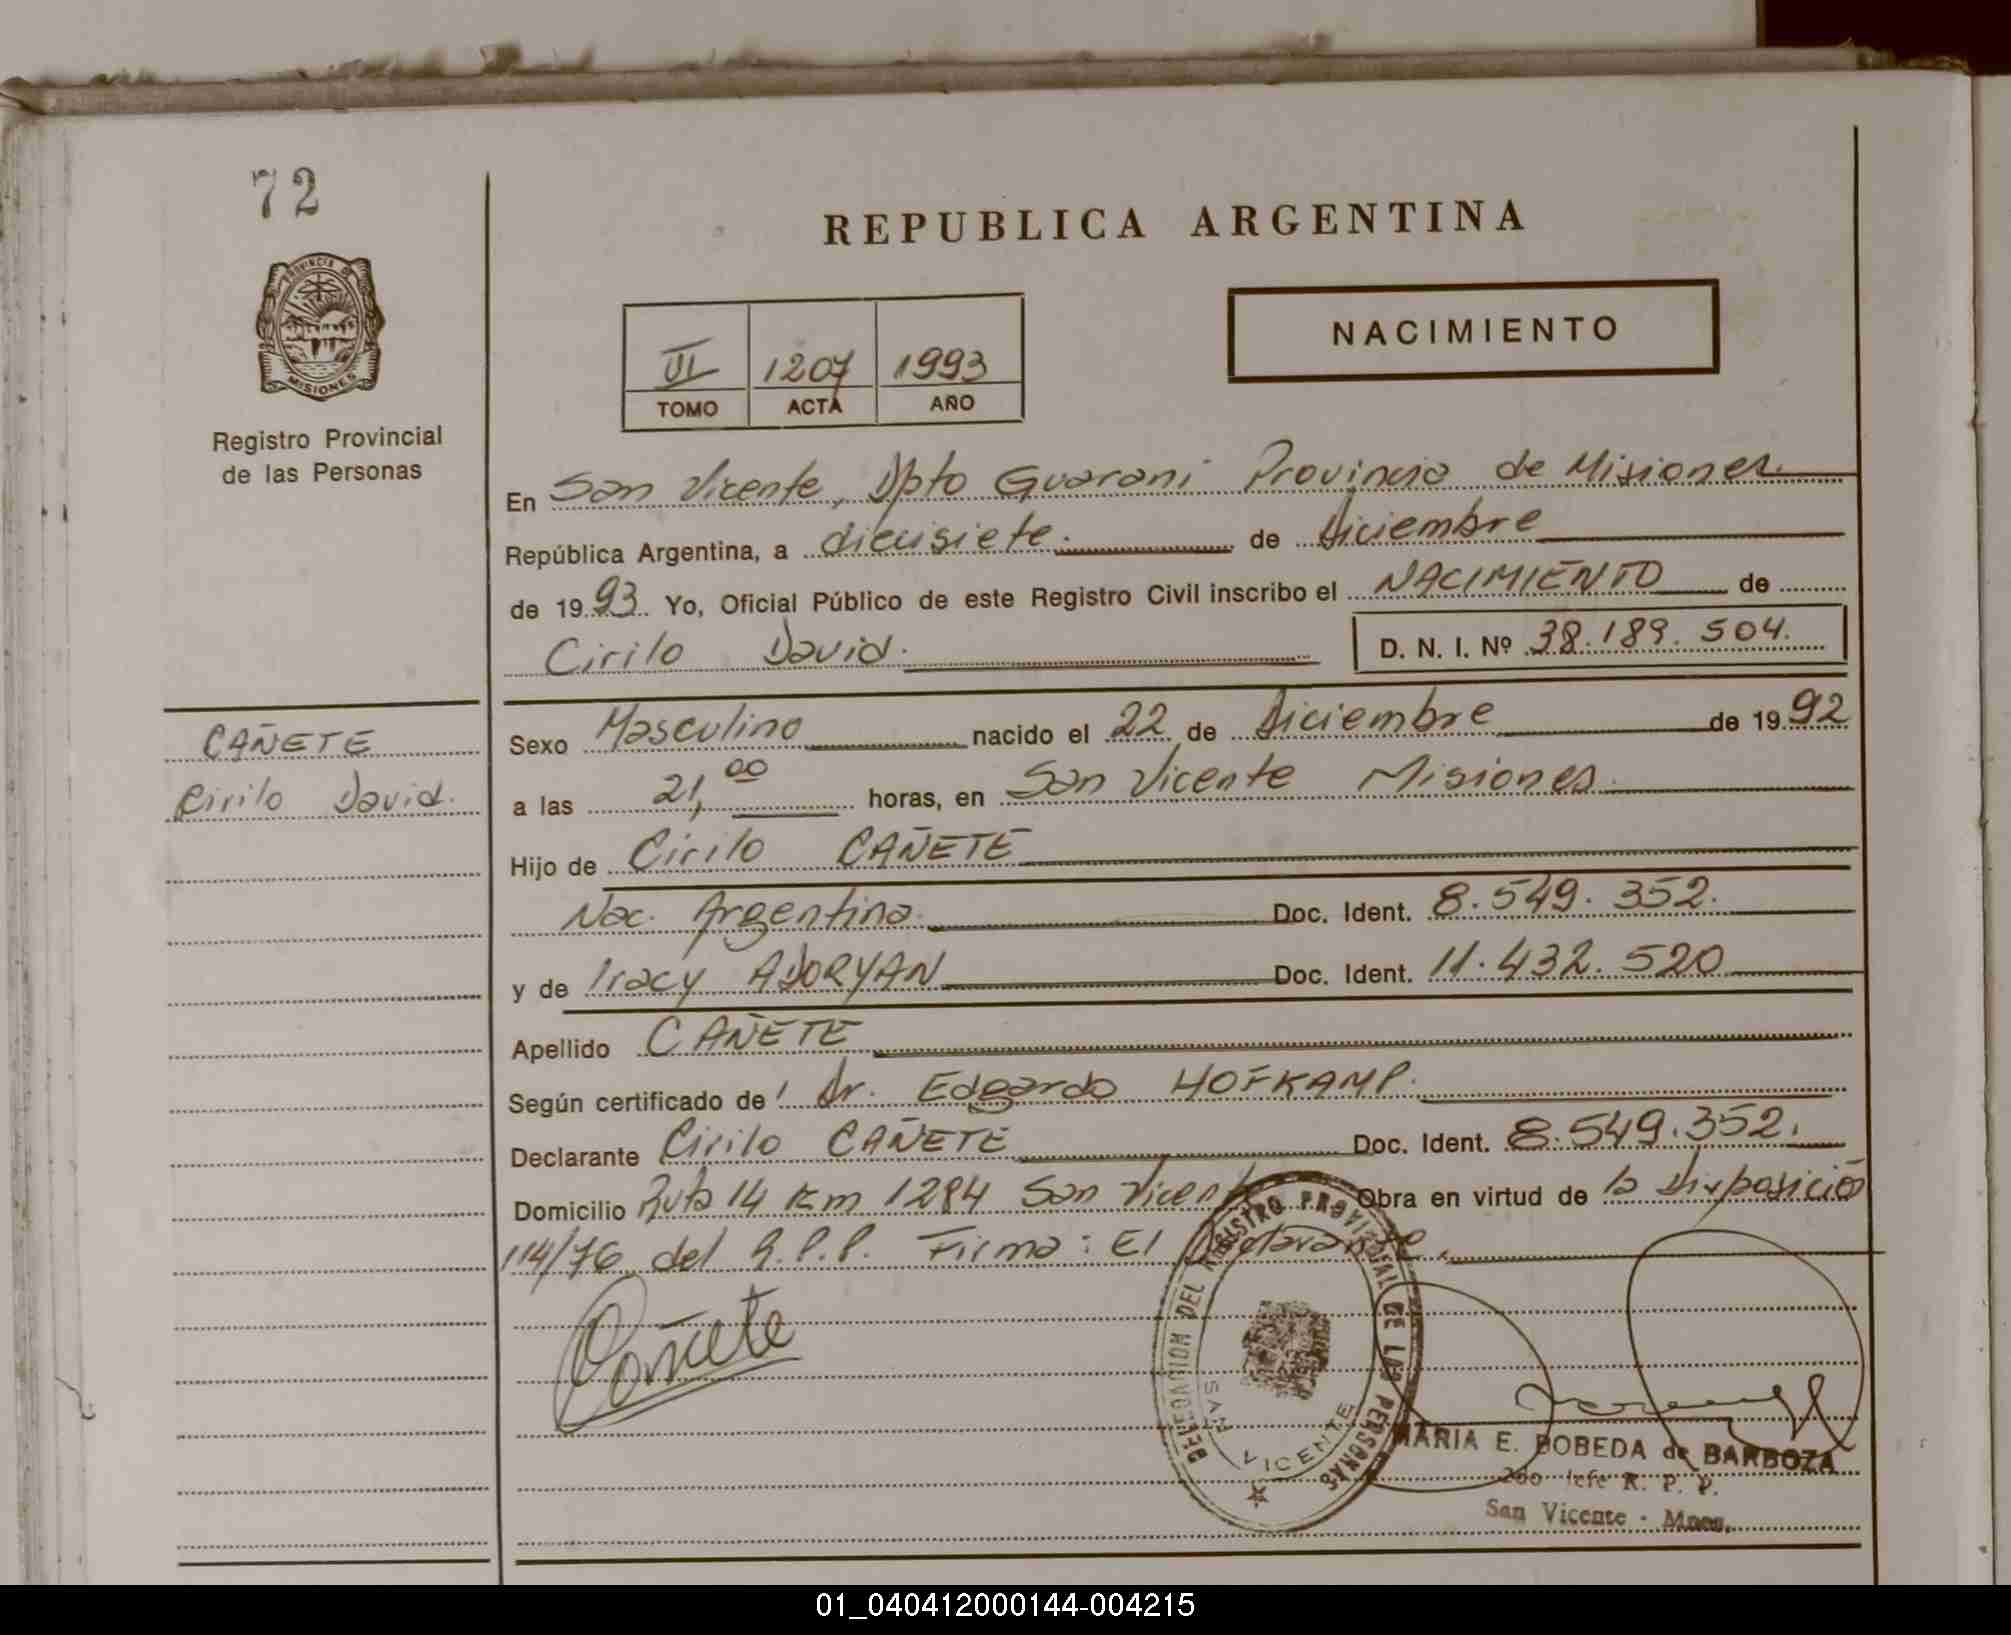 72
PROVINCIA DE
MISIONES
Registro Provincial
de las Personas
CAÑETE
Cirilo David.
REPUBLICA ARGENTINA
NACIMIENTO
1207 1993
TOMO ACTA AÑO
En San Vicente, Dpto Guarani Provincia de Misiones.
República Argentina, a diecisiete. de Diciembre
de 1993 Yo, Oficial Público de este Registro Civil inscribo el NACIMIENTO de
Cirilo David. D. N. I. Nº 38.189.504.
Sexo Masculino nacido el 22 de Diciembre de 1992
a las 21,00 horas, en San Vicente Misiones.
Hijo de Cirilo CAÑETE
Nac. Argentina. Doc. Ident. 8.549.352.
y de Iracy ADORYAN Doc. Ident. 11.432.520
Apellido CAÑETE
Según certificado de Dr. Edgardo HOFKAMP.
Declarante Cirilo CAÑETE Doc. Ident. 8.549.352.
Domicilio Ruta 14 Km 1284 San Vicente Obra en virtud de la Disposición
114/76 del R.P.P. Firma: El Declarante.
Cañete
DELEGACION DEL REGISTRO PROVINCIAL DE LAS PERSONAS
SAN VICENTE
MARIA E. BOBEDA de BARBOZA
2do Jefe R. P. P.
San Vicente - Mnes.
01_040412000144-004215